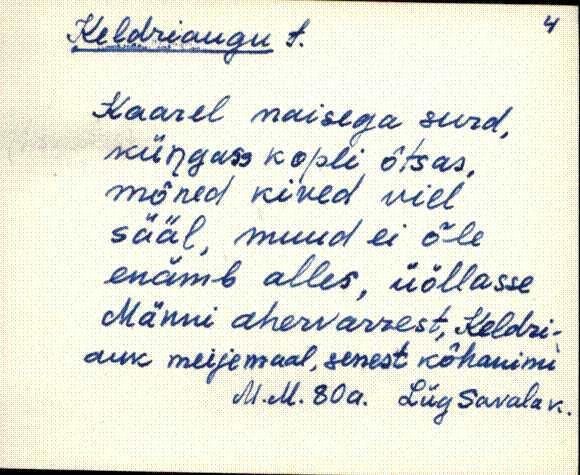 Keldriaugu t. 4
Kaarel naisega surd,
küngass kopli õtsas,
mõned kived viel
sääl, muud ei õle
enämb alles, üöllasse
Männi ahervarrest, Keldri-
auk meijemaal, senest kõhanimi
M.M. 80a. Lüg Savala k.